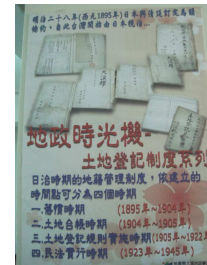 明治二十八年(西元1895年)日本與清廷訂定馬關
條約，自此台灣開始由日本統治...
地政時光機-
土地登記制度系列
日治時期的地籍管理制度，依建立的
時間點可分為四個時期
一.舊慣時期 (1895年~1904年)
二.土地台帳時期 (1904年~1905年)
三.土地登記規則實施時期(1905年~1922年)
四.民法實行時期 (1923年~1945年)